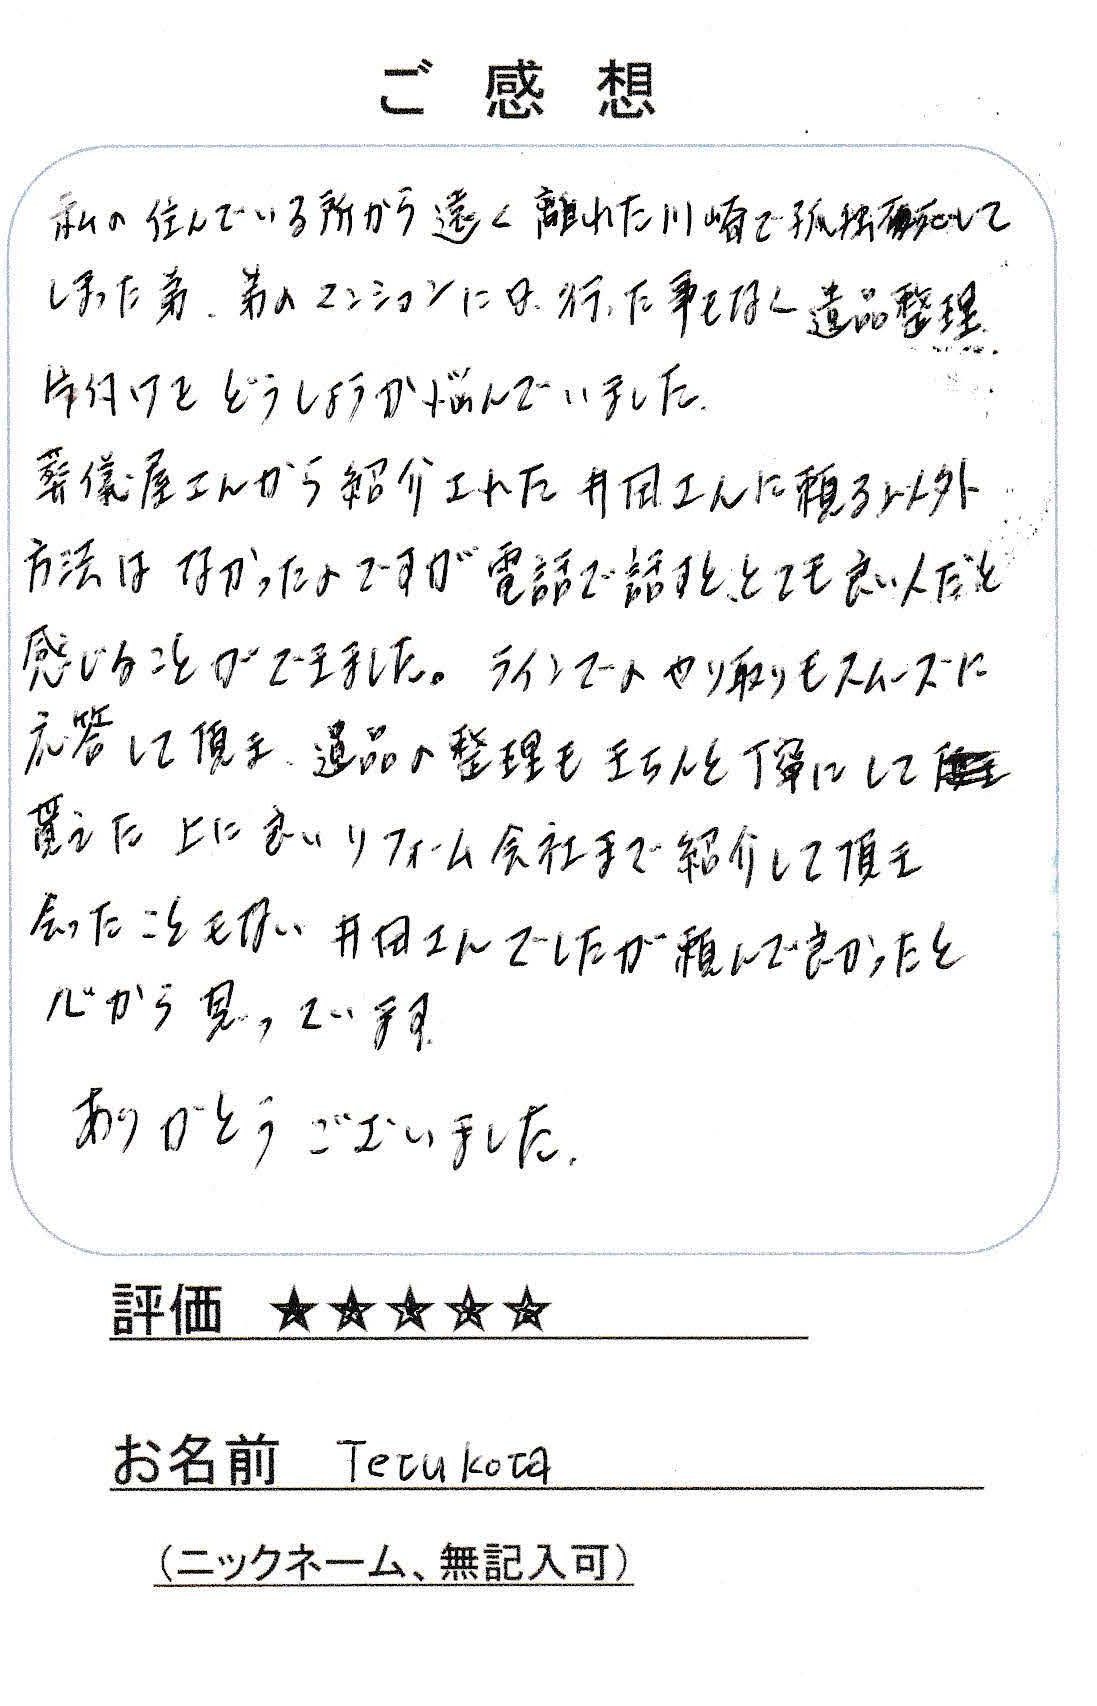 ご感想
私の住んでいる所から遠く離れた川崎で孤独死して
しまった弟、弟のマンションには、行った事もなく遺品整理、
片付けをどうしようか悩んでいました。
葬儀屋さんから紹介された井田さんに頼る以外
方法はなかったのですが電話で話すと、とても良い人だと
感じることができました。ラインでのやり取りもスムーズに
応答して頂き、遺品の整理もきちんと丁寧にして
貰えた上に良いリフォーム会社まで紹介して頂き
会ったこともない井田さんでしたが頼んで良かったと
心から思っています。
ありがとうございました。
評価 ★★★★★
お名前 Terukota
（ニックネーム、無記入可）